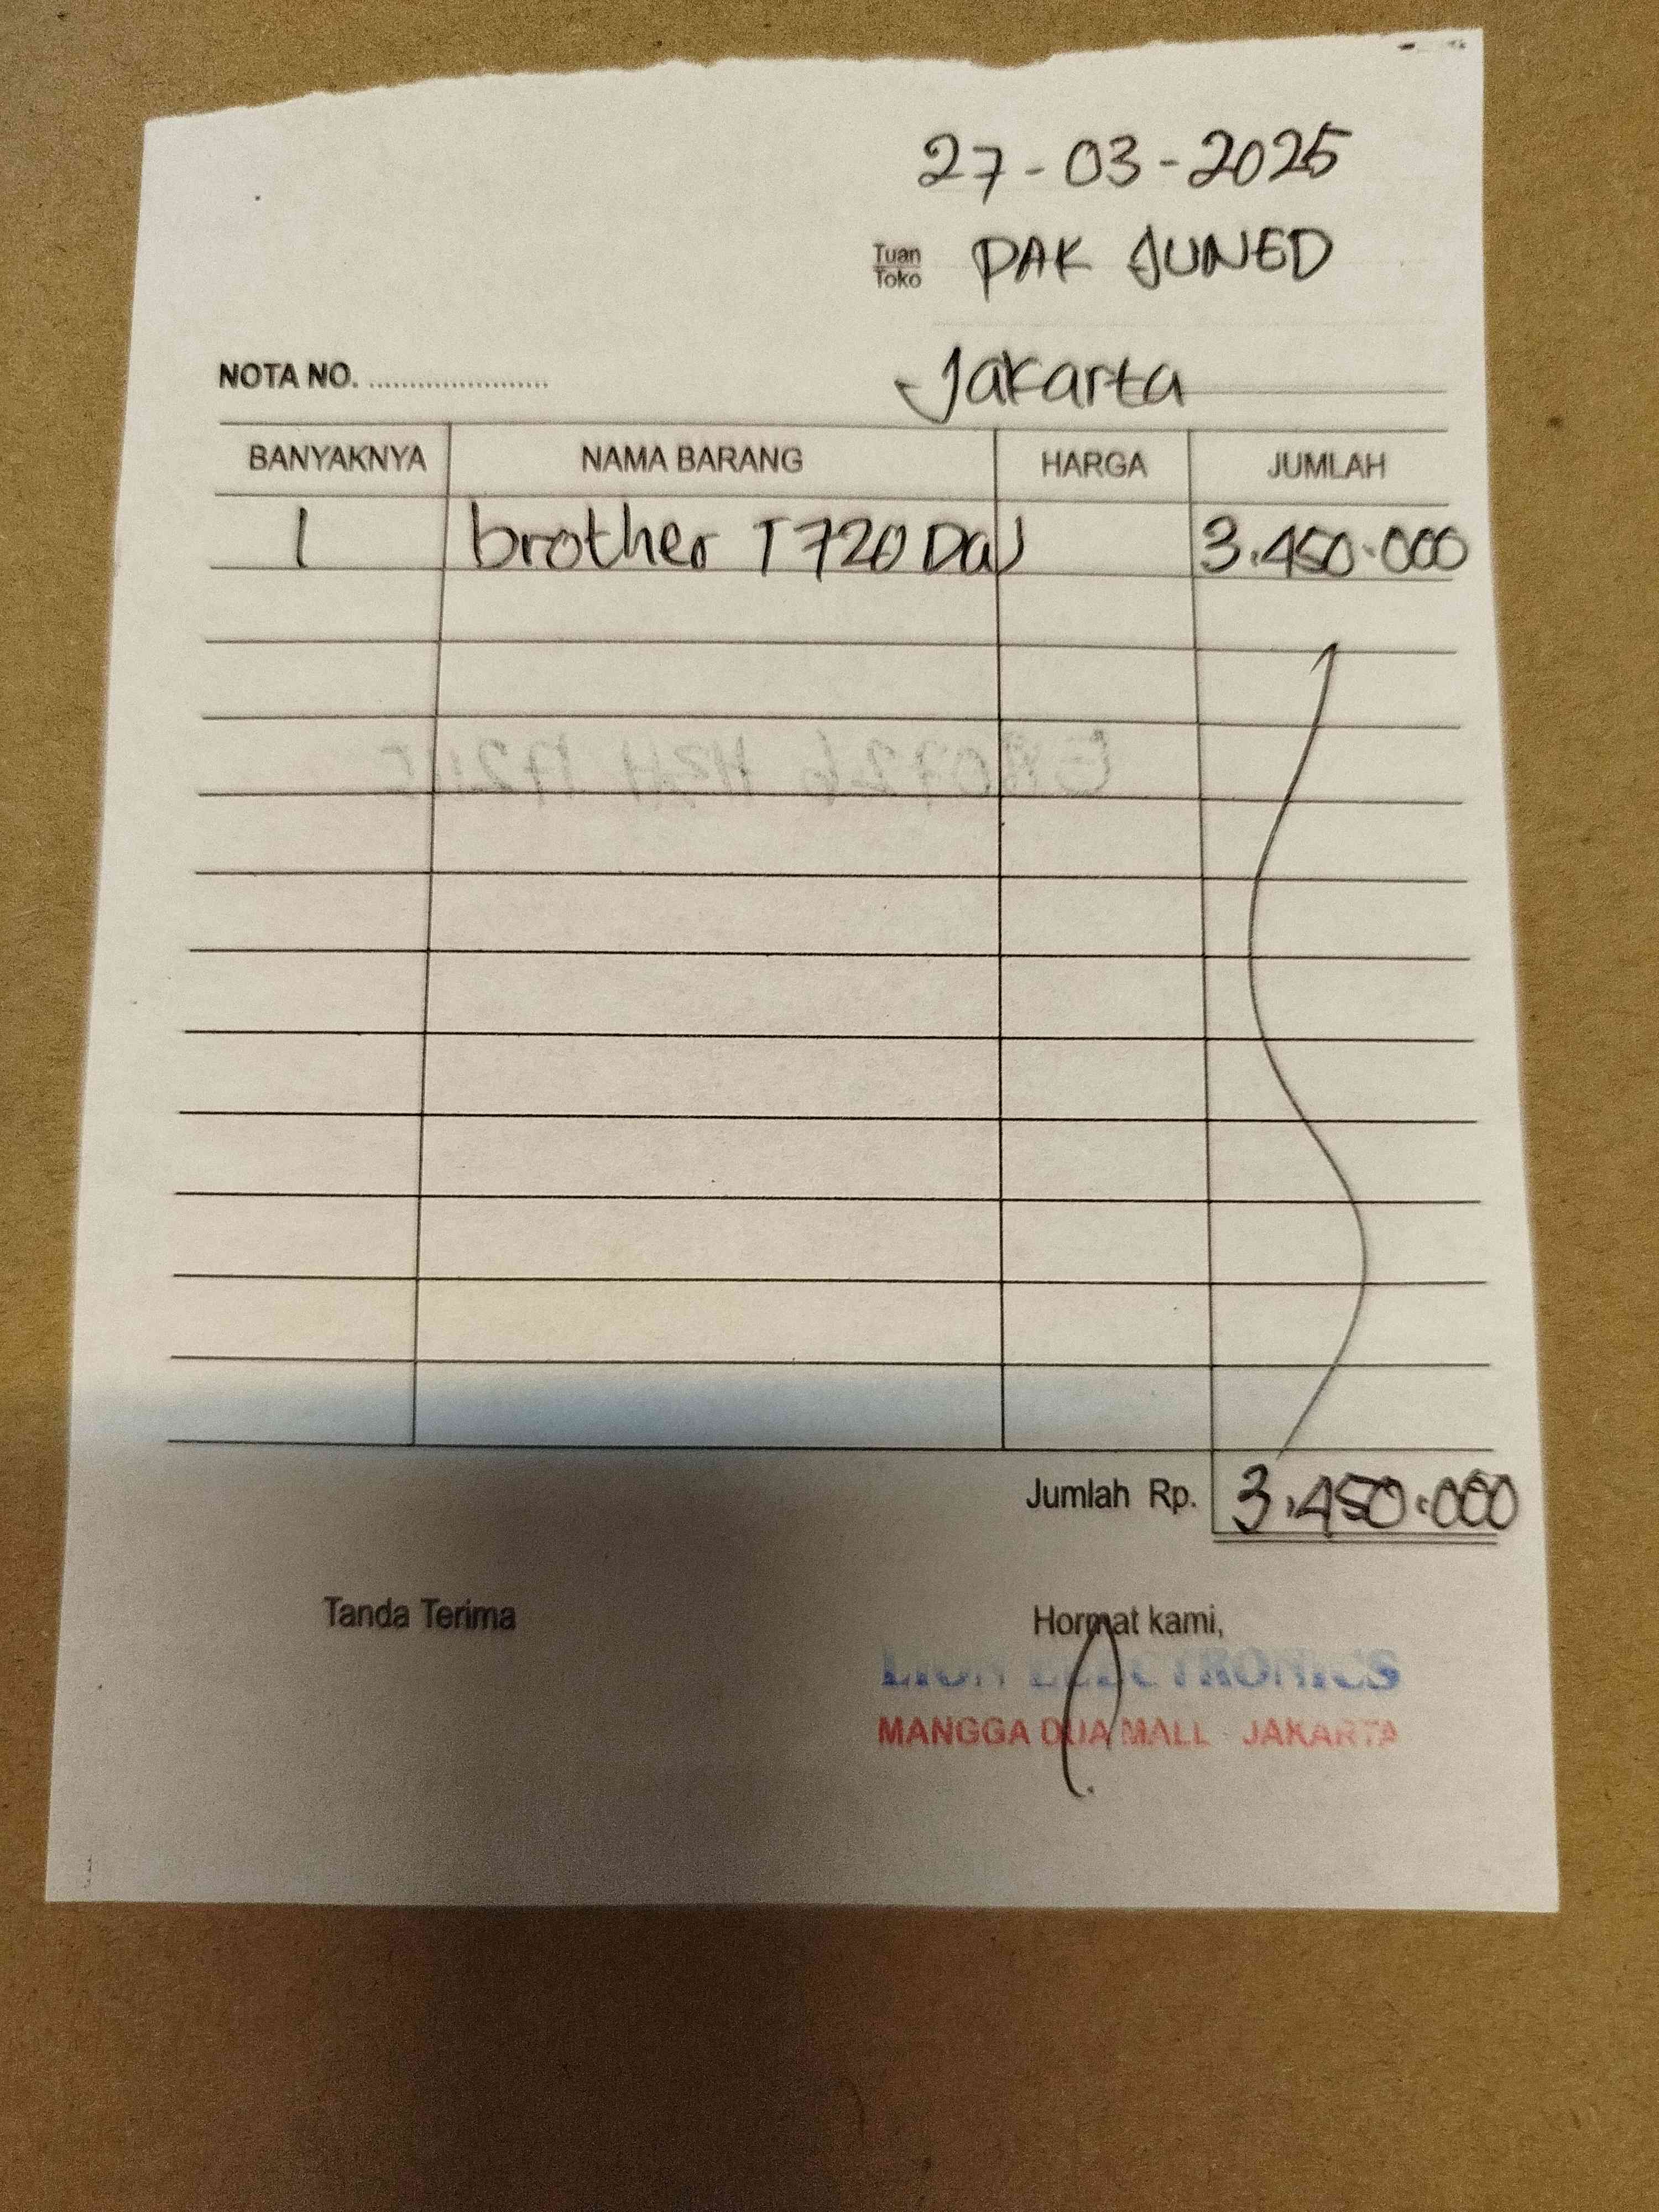 27-03-2025
Tuan
Toko
PAK JUNED
NOTA NO. ......................
Jakarta
BANYAKNYA NAMA BARANG HARGA JUMLAH
1 brother T720 DW 3.450.000
Jumlah Rp. 3.450.000
Tanda Terima Hormat kami,
LION ELECTRONICS
MANGGA DUA MALL JAKARTA